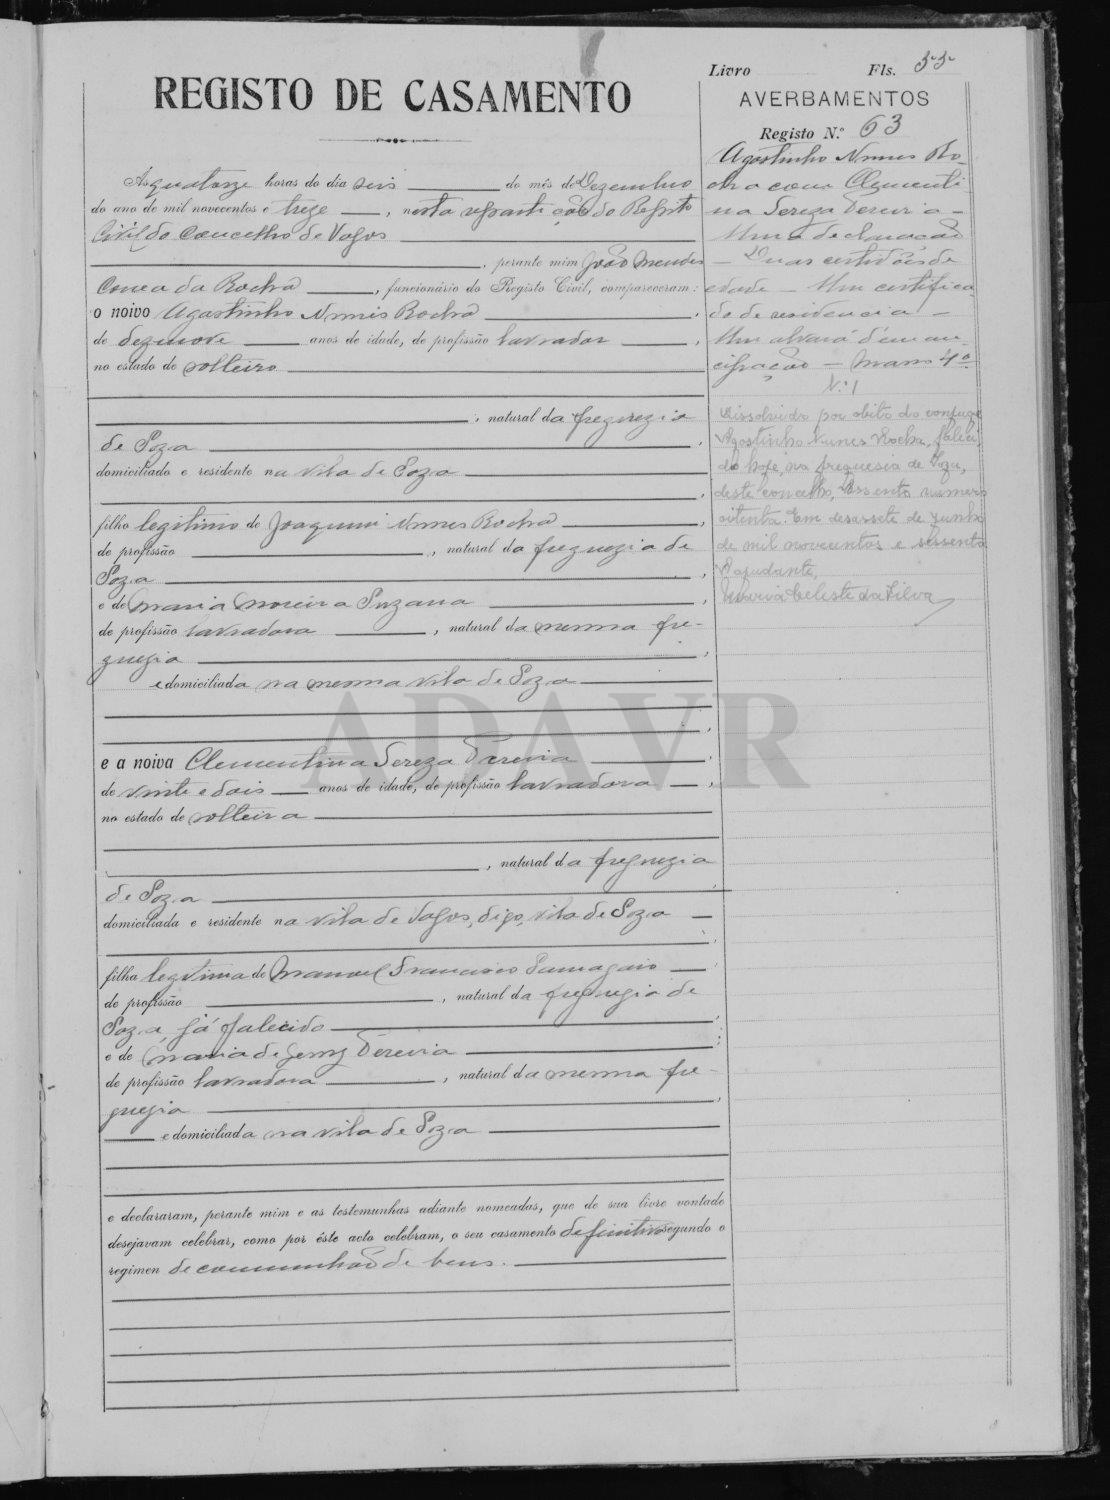 Livro Fls. 55
REGISTO DE CASAMENTO
AVERBAMENTOS
Registo N.º 63
Às quatorze horas do dia seis do mês de Dezembro
do ano de mil novecentos e treze, nesta repartição do Registo
Civil do Concelho de Vagos
, perante mim João Mendes
Correa da Rocha, funcionário do Registo Civil, compareceram:
o noivo Agostinho Nunes Rocha,
de dezenove anos de idade, de profissão lavrador,
no estado de solteiro
, natural da freguezia
de Soza,
domiciliado e residente na vila de Soza
,
filho legitimo de Joaquim Nunes Rocha,
de profissão , natural da freguezia de
Soza,
e de Maria Moreira Suzana,
de profissão lavradora, natural da mesma fre-
guezia,
e domiciliada na mesma vila de Soza
e a noiva Clementina Tereza Pereira,
de vinte e dois anos de idade, de profissão lavradora,
no estado de solteira
, natural da freguezia
de Soza,
domiciliada e residente na vila de Vagos, digo, vila de Soza
,
filha legitima de Manuel Francisco Samagaio,
de profissão , natural da freguezia de
Soza, já falecido,
e de Maria de Jesus Pereira,
de profissão lavradora, natural da mesma fre-
guezia,
e domiciliada na vila de Soza
e declararam, perante mim e as testemunhas adiante nomeadas, que de sua livre vontade
desejavam celebrar, como por êste acto celebram, o seu casamento definitivo segundo o
regimen de comunhão de bens.
Agostinho Nunes Ro-
cha com Clementi-
na Tereza Pereira -
Uma declaração
- Duas certidões de
edade - Um certifica-
do de residencia -
Um alvará d'eman-
cipação - Maço 4º
N.º 1
Dissolvido por obito do conjuge
Agostinho Nunes Rocha, faleci-
do hoje, na freguesia de Soza,
deste concelho, Assento numero
oitenta. Em desassete de Junho
de mil novecentos e sessenta
O ajudante,
Maria Celeste da Silva
ADAVR